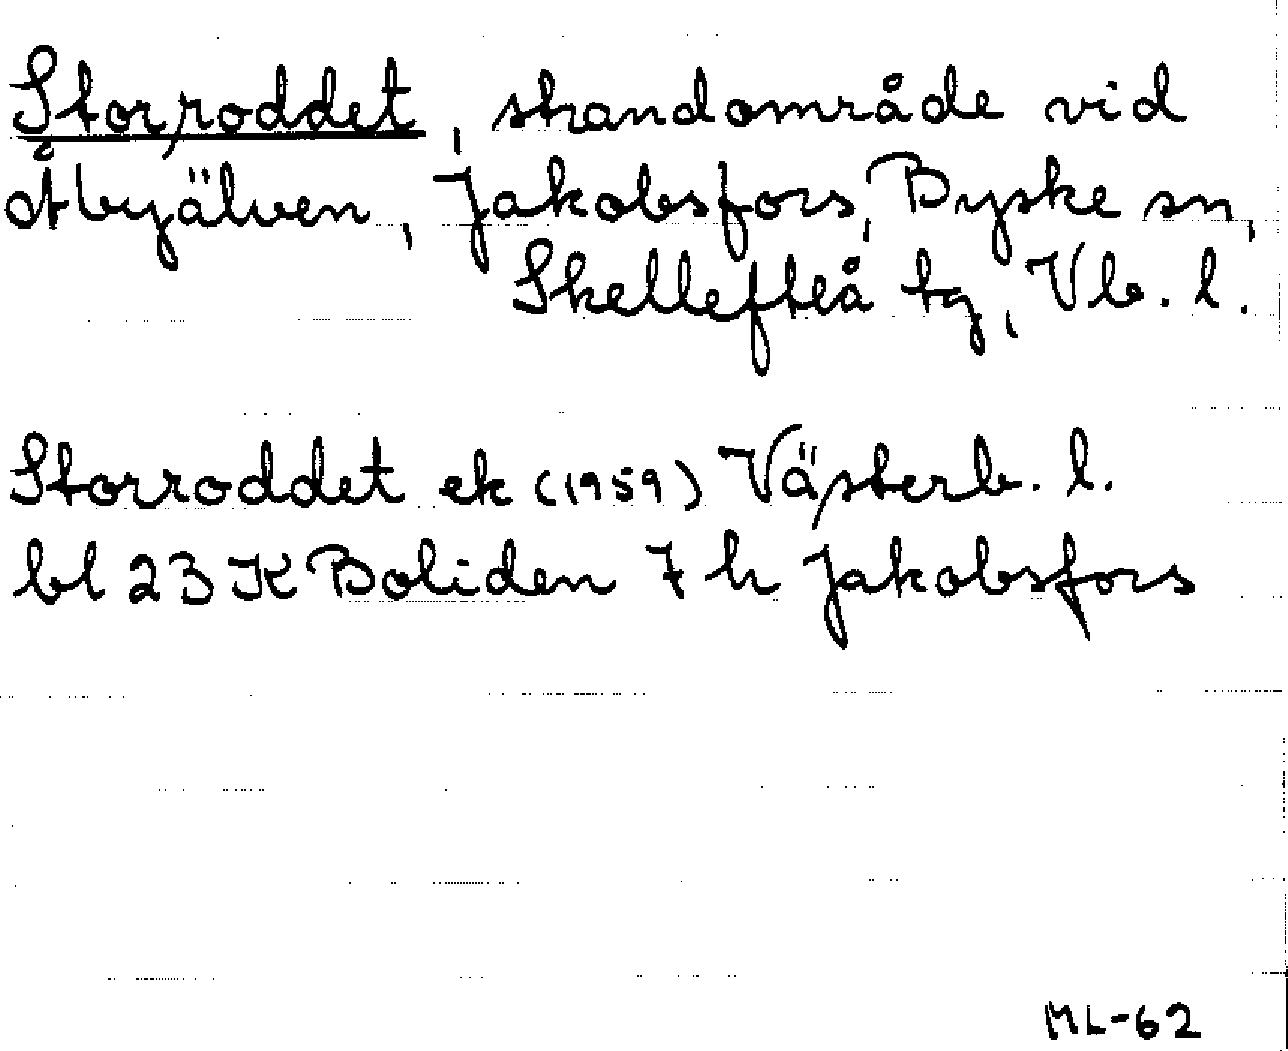 Storroddet, strandområde vid
Åbyälven, Jakobsfors, Byske sn,
Skellefteå tg, Vb. l.
Storroddet ek (1959) Västerb. l.
bl 23 K Boliden 7 h Jakobsfors
ML-62